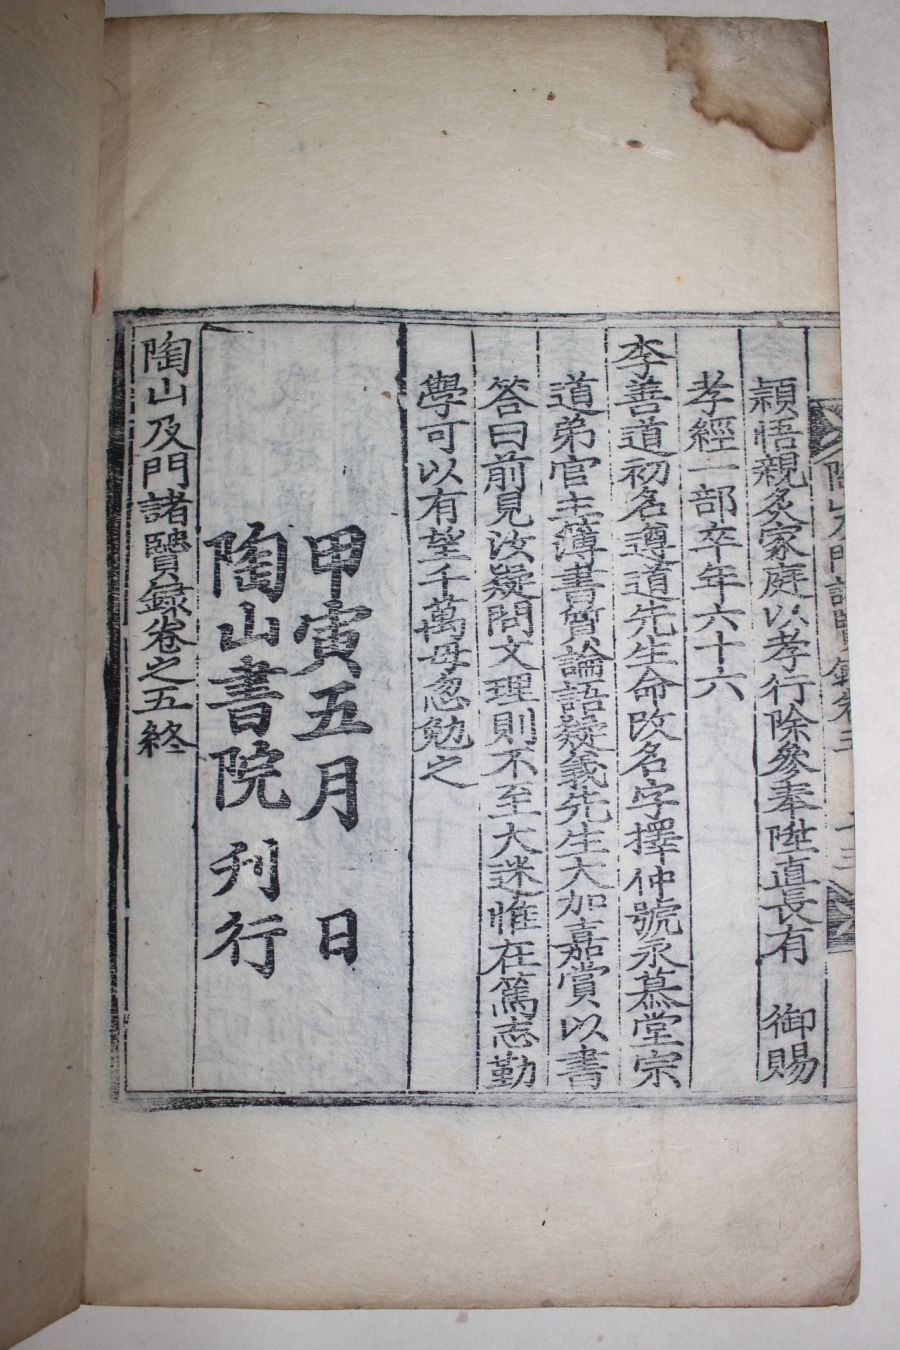 陶山及門諸賢錄卷之五 十三
穎悟親炙家庭以孝行除參奉陞直長有 御賜
孝經一部卒年六十六
李善道初名遵道先生命改名字擇仲號永慕堂宗
道弟官主簿書質論語疑義先生大加嘉賞以書
答曰前見汝疑問文理則不至大迷惟在篤志勤
學可以有望千萬毋忽勉之
甲寅五月 日
陶山書院刊行
陶山及門諸賢錄卷之五終